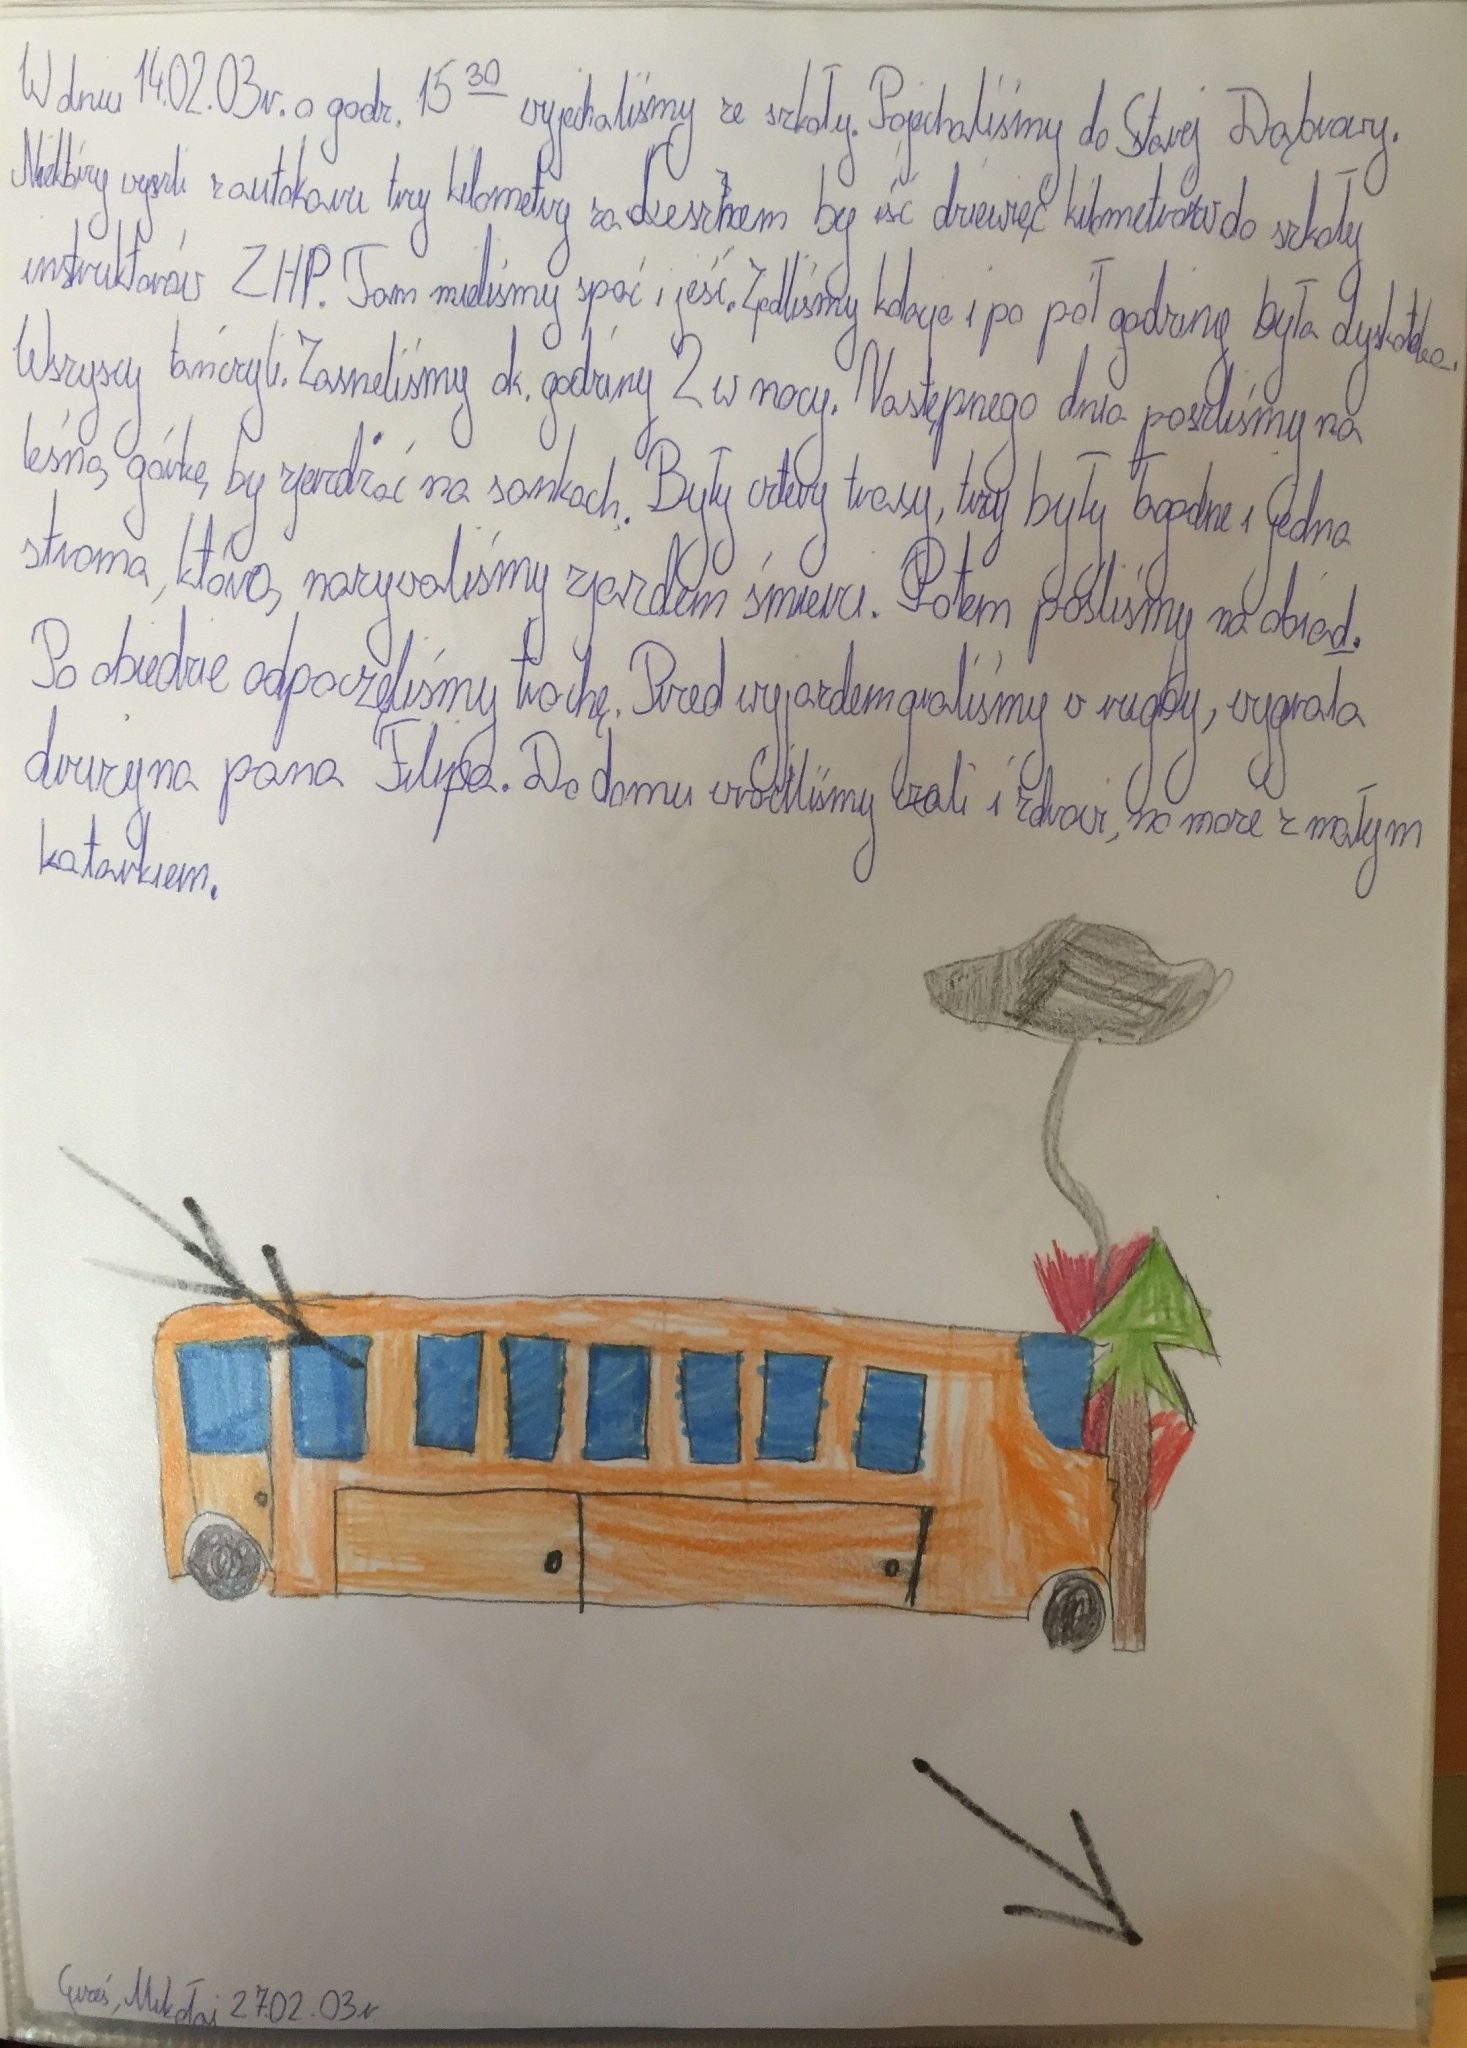 W dniu 14.02.03r. o godz. 15 30 wyjechaliśmy ze szkoły. Pojechaliśmy do Starej Dąbrowy.
Niektórzy wyszli z autokaru trzy kilometry za by iść dziewięć kilometrów do szkoły
instruktorów ZHP. Tam mieliśmy spać i jeść. Zjedliśmy kolację i po pół godzinie była dyskoteka.
Wszyscy tańczyli. Zasneliśmy ok. godziny 2 w nocy. Następnego dnia poszliśmy na
leśną górkę, by zjeżdżać na sankach. Były cztery trasy, trzy były łagodne i jedna
stroma, którą nazywaliśmy zjazdem śmierci. Potem pośliśmy na obiad.
Po obiedzie odpoczęliśmy trochę. Przed wyjazdem graliśmy w rugby, wygrała
drużyna pana Filipa. Do domu wróciliśmy cali i zdrowi, no może z małym
katarkiem.
Mikołaj 27.02.03r